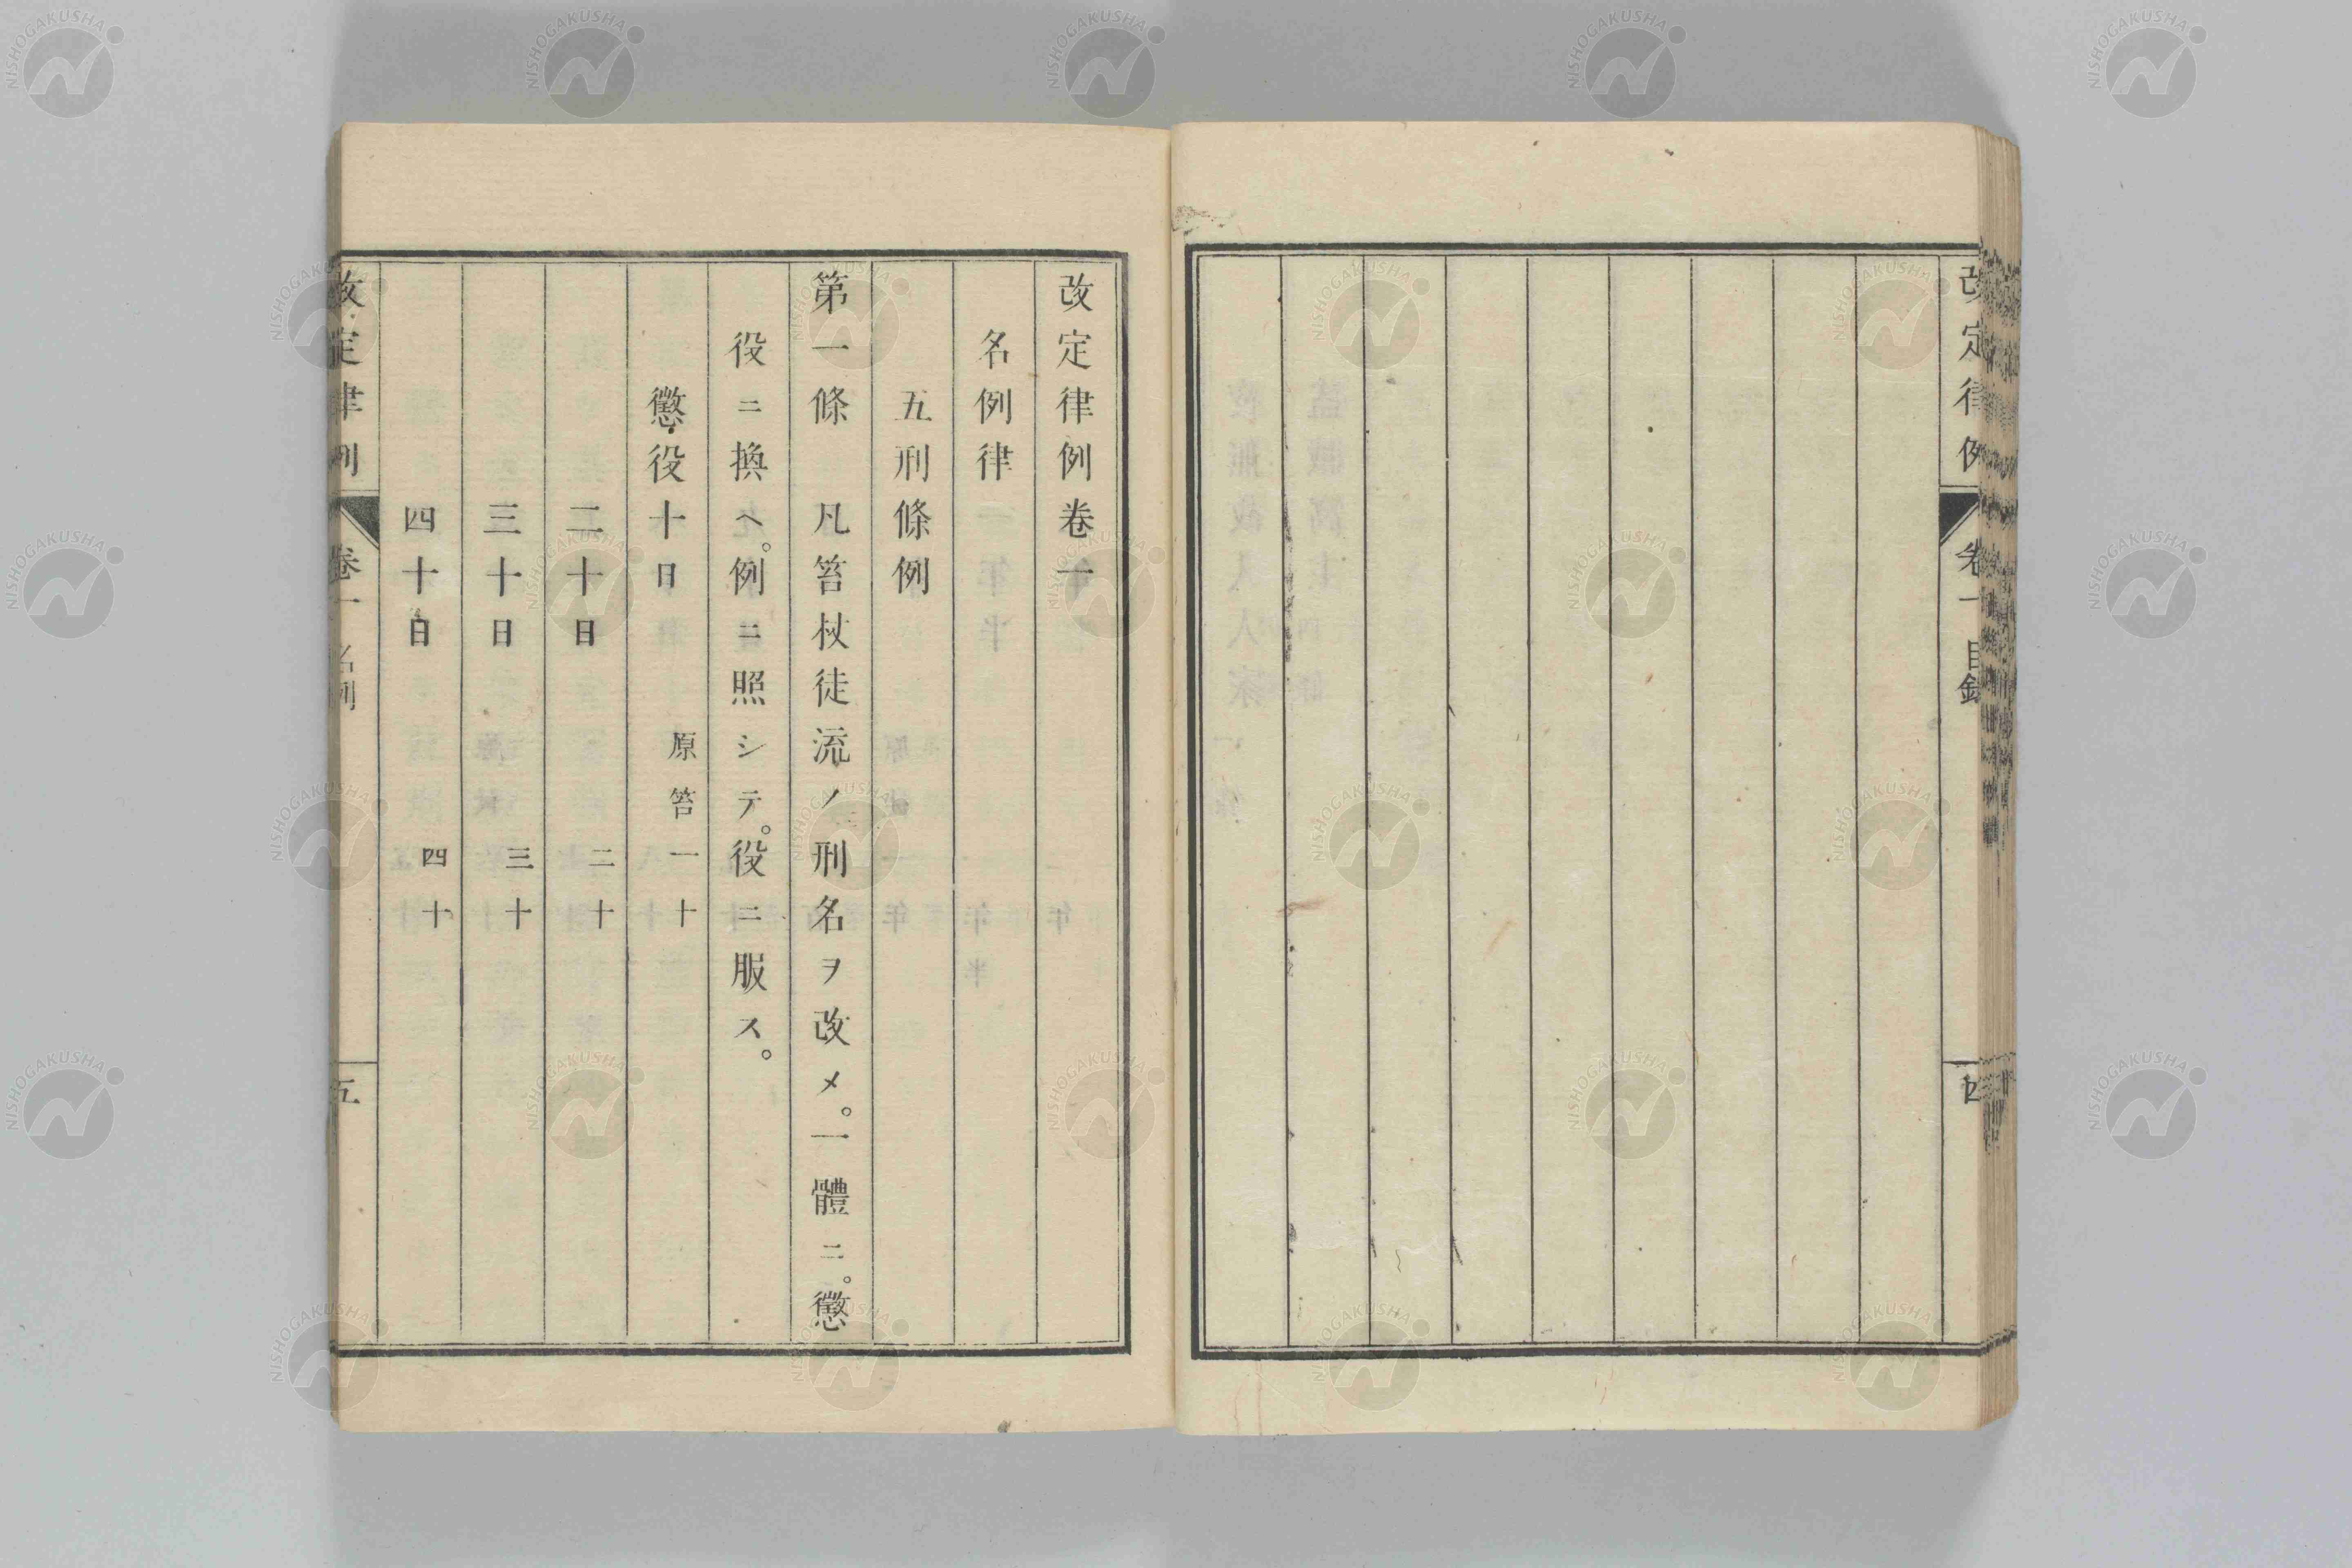 改定律例 卷一 目錄 四
改定律例卷一
名例律
五刑條例
第一條 凡笞杖徒流ノ刑名ヲ改メ。一體ニ。懲
役ニ換ヘ。例ニ照シテ。役ニ服ス。
懲役十日 原笞一十
二十日 二十
三十日 三十
四十日 四十
改定律例 卷一 名例 五